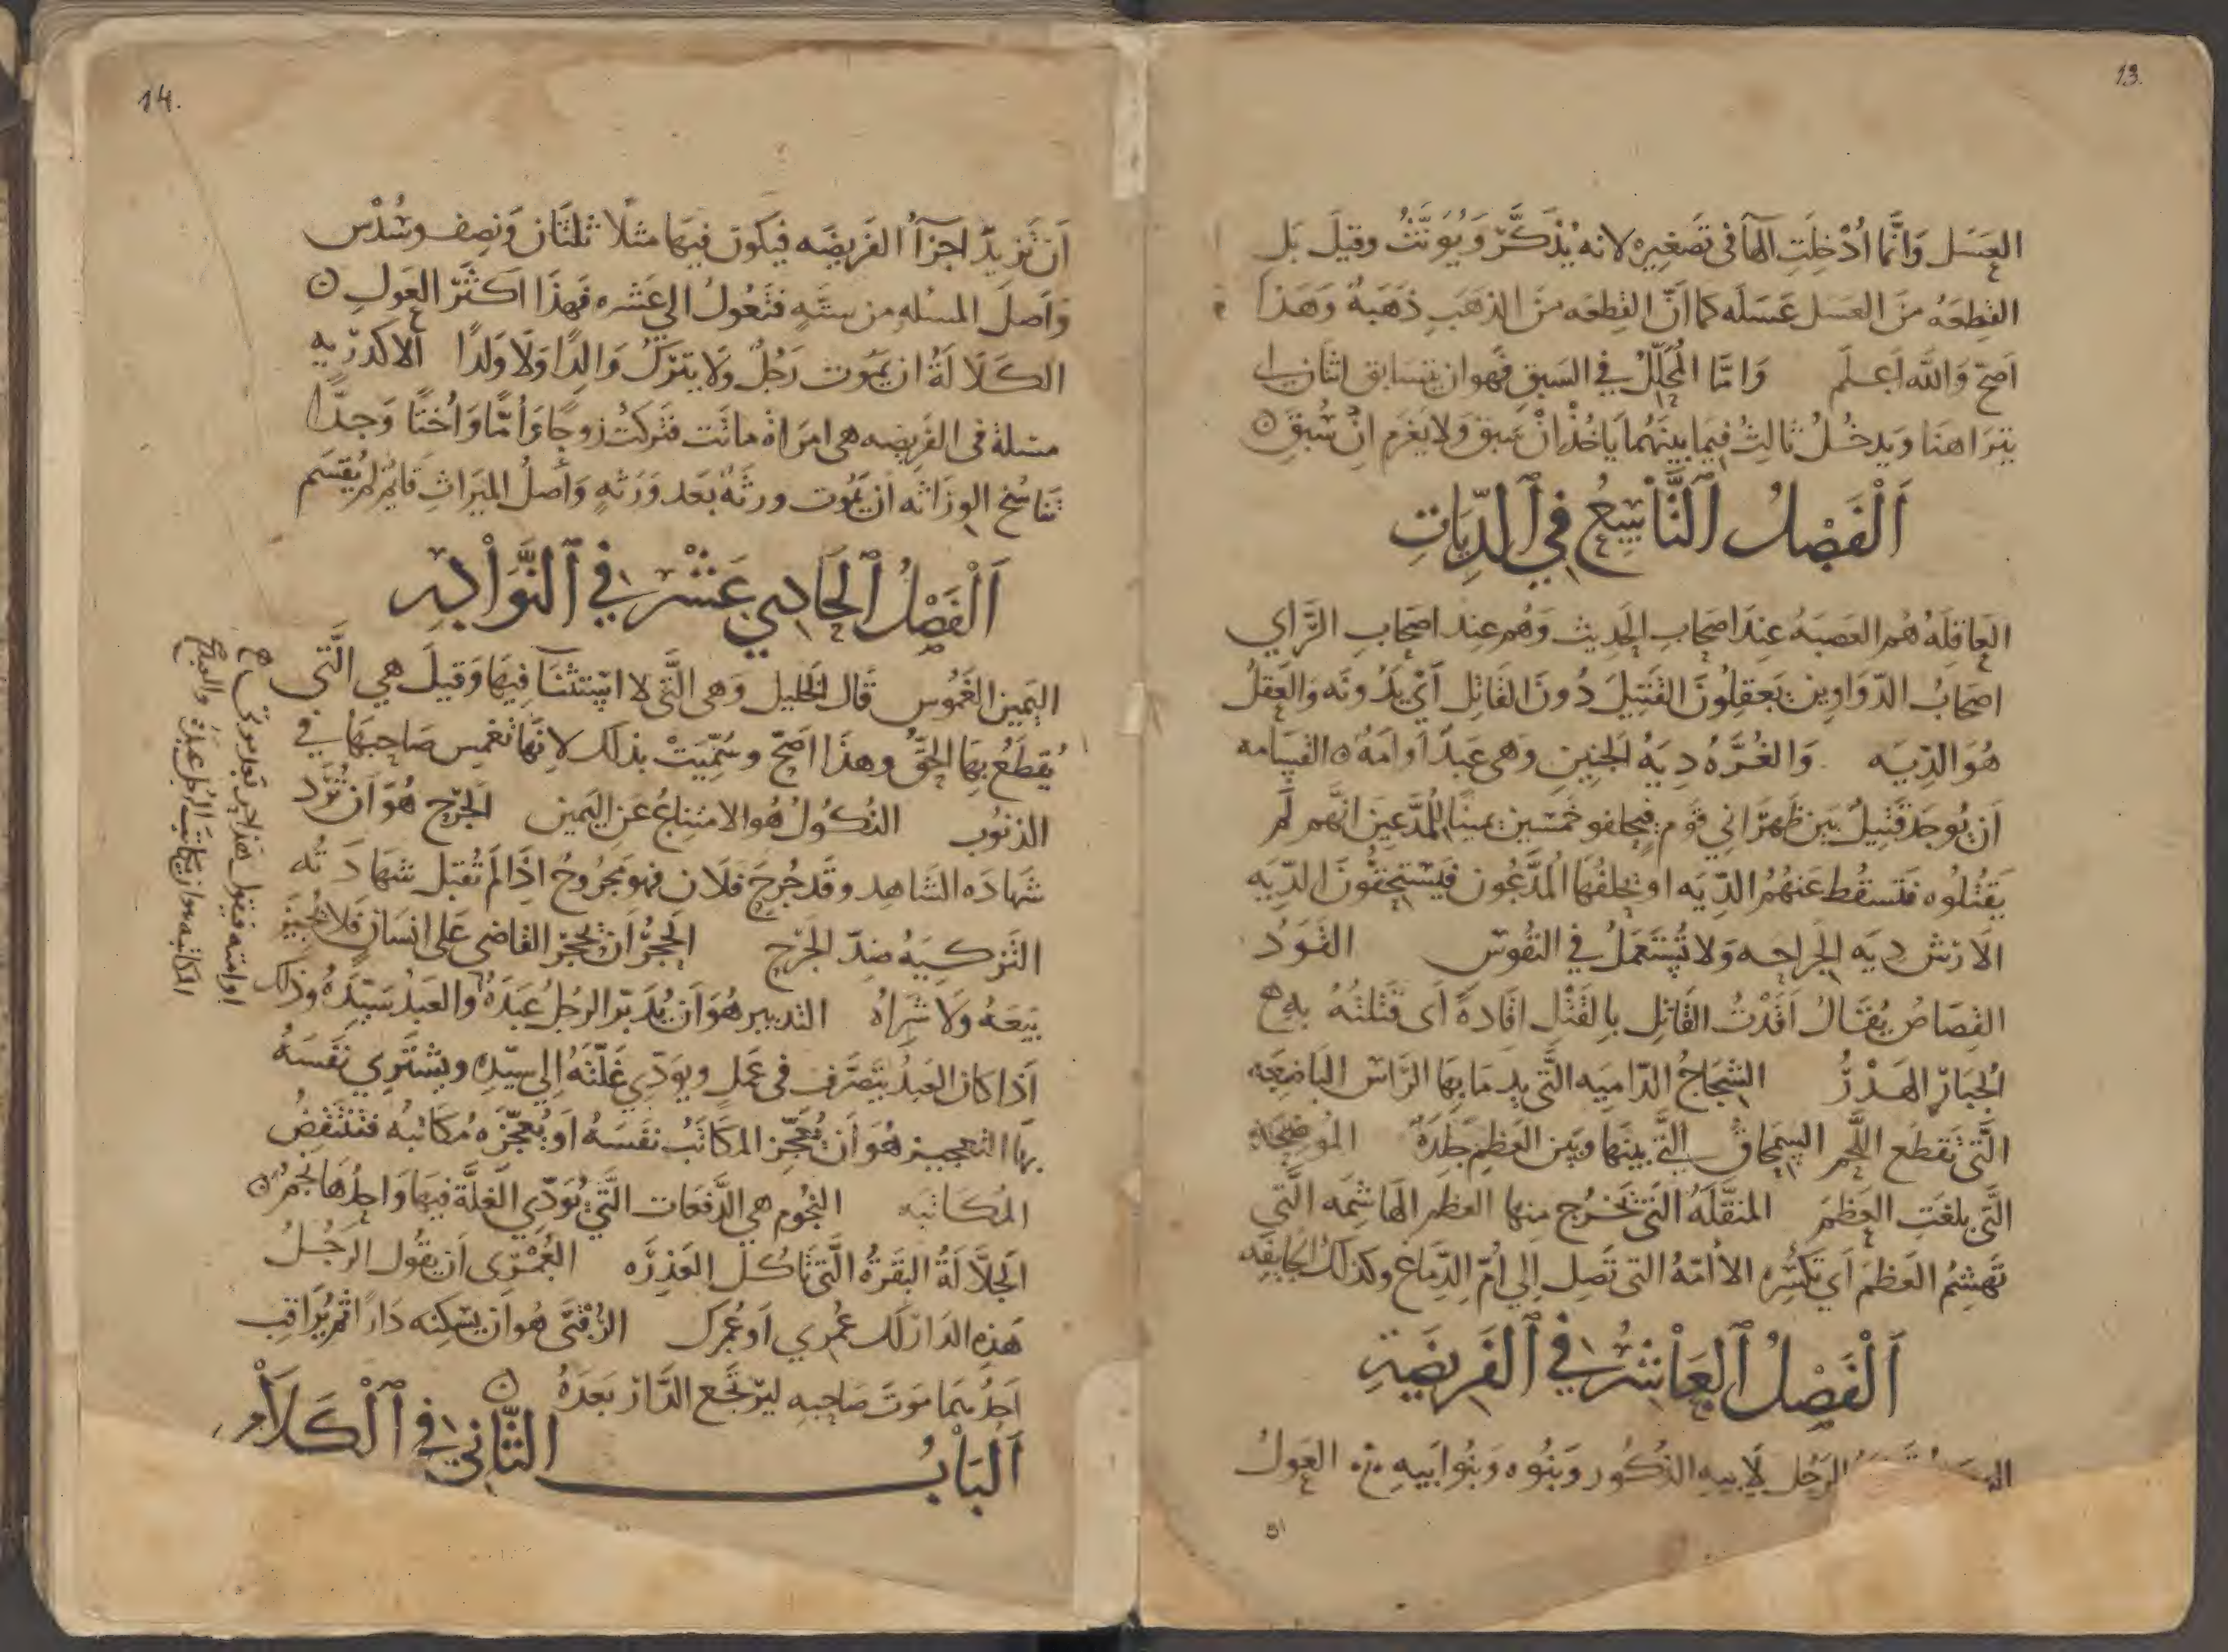 13.
العسل وانما ادخلت الها فى تصغيره لانه يذكر ويونث وقيل بل
القطعه من العسل عسله كما ان القطعه من الذهب ذهبة وهذا
اصح والله اعلم وامّا المحلّل في السبق فهو ان يتسابق اثنان
يتراهنا ويدخل ثالث فيما بينهما ياخذ ان سبق ولا يغرم ان سبق
اَلْفَصْلُ اَلتَّاسِعُ فِي اَلدِّيَاتِ
العاقله هم العصبه عند اصحاب الحديث وهم عند اصحاب الراي
اصحاب الدواوين يعقلون القتيل دون القاتل أي يدونه والعقل
هو الديه والغرّه ديه الجنين وهى عبد او امه القسامه
ان يوجد قتيل بين ظهراني قوم فيحلفو خمسين يمينا للمدعين انهم لم
يقتلوه فتسقط عنهم الديه او يحلفها المدّعون فيستحقون الديه
الارش ديه الجراحه ولا تستعمل في النفوس القود
القصاص يقال اقدت القاتل بالقتل اقادة اى قتلته به
الجبار الهدر الشجاج الداميه التي يدما بها الراس الباضعه
التى تقطع اللحم السمحاق التي بينها وبين العظم جلده الموضحة
التي بلغت العظم المنقّله التى تخرج منها العظم الهاشمه التي
تهشم العظم أي تكسره الأامّه التى تصل إلي أمّ الدماغ وكذلك الجايفه
اَلْفَصْلُ اَلْعَاشِرُ فِي اَلْفَرِيضَةِ
الرجل لابيه الذكور وبنوه وبنوا ابيه العول
14.
ان تزيد اجزآ الفريضه فيكون فيها مثلا ثلثان ونصف وسدس
واصل المسله من سته فتعول الي عشره فهذا اكثر العول
الكلالة ان يموت رجل ولا يترك والدا ولا ولدا الاكدريه
مسلة فى الفريضه هى امراة ماتت فتركت زوجا وأمّا وأختا وجدّا
تناسخ الوراثه ان يموت ورثة بعد ورثه واصل الميراث قايم لم يقسم
اَلْفَصْلُ اَلْحَادِي عَشَرَ فِي اَلنَّوَادِرِ
اليمين الغموس قال الخليل وهى التي لا استثنآ فيها وقيل هي التي
يقطع بها الحق وهذا اصح وسمّيت بذلك لانها تغمس صاحبها في
الذنوب النكول هو الامتناع عن اليمين الجرح هو ان ترد
شهاده الشاهد وقد جرح فلان فهو مجروح اذا لم تقبل شهادته
التزكيه ضدّ الجرح الحجر ان يحجر القاضى على انسان فلا يجيز
بيعه ولا شراه التدبير هو ان يدبّر الرجل عبده والعبد سيّده وذلك
اذا كان العبد يتصرف فى عمل ويودّي غلّته إلي سيّده ويشتري نفسه
بها التعجيز هو أن يعجّز المكاتب نفسه او يعجّزه مكاتبه فتنتقض
المكاتبه النجوم هي الدفعات التي يودّي الغلّة فيها واحدها نجم
الجلّالة البقرة التي تاكل العذره العُمْرَى ان يقول الرجل
هذه الدار لك عمري او عمرك الرُقْبَى هو ان يسكنه دارا ثم يراقب
احدهما موت صاحبه ليرتجع الدار بعده
اَلْبَابُ الثَّانِي فِي اَلْكَلَامِ
او امته فيقول هذا حر بعد موتي
المكاتبه هو ان يكاتب الرجل عبده